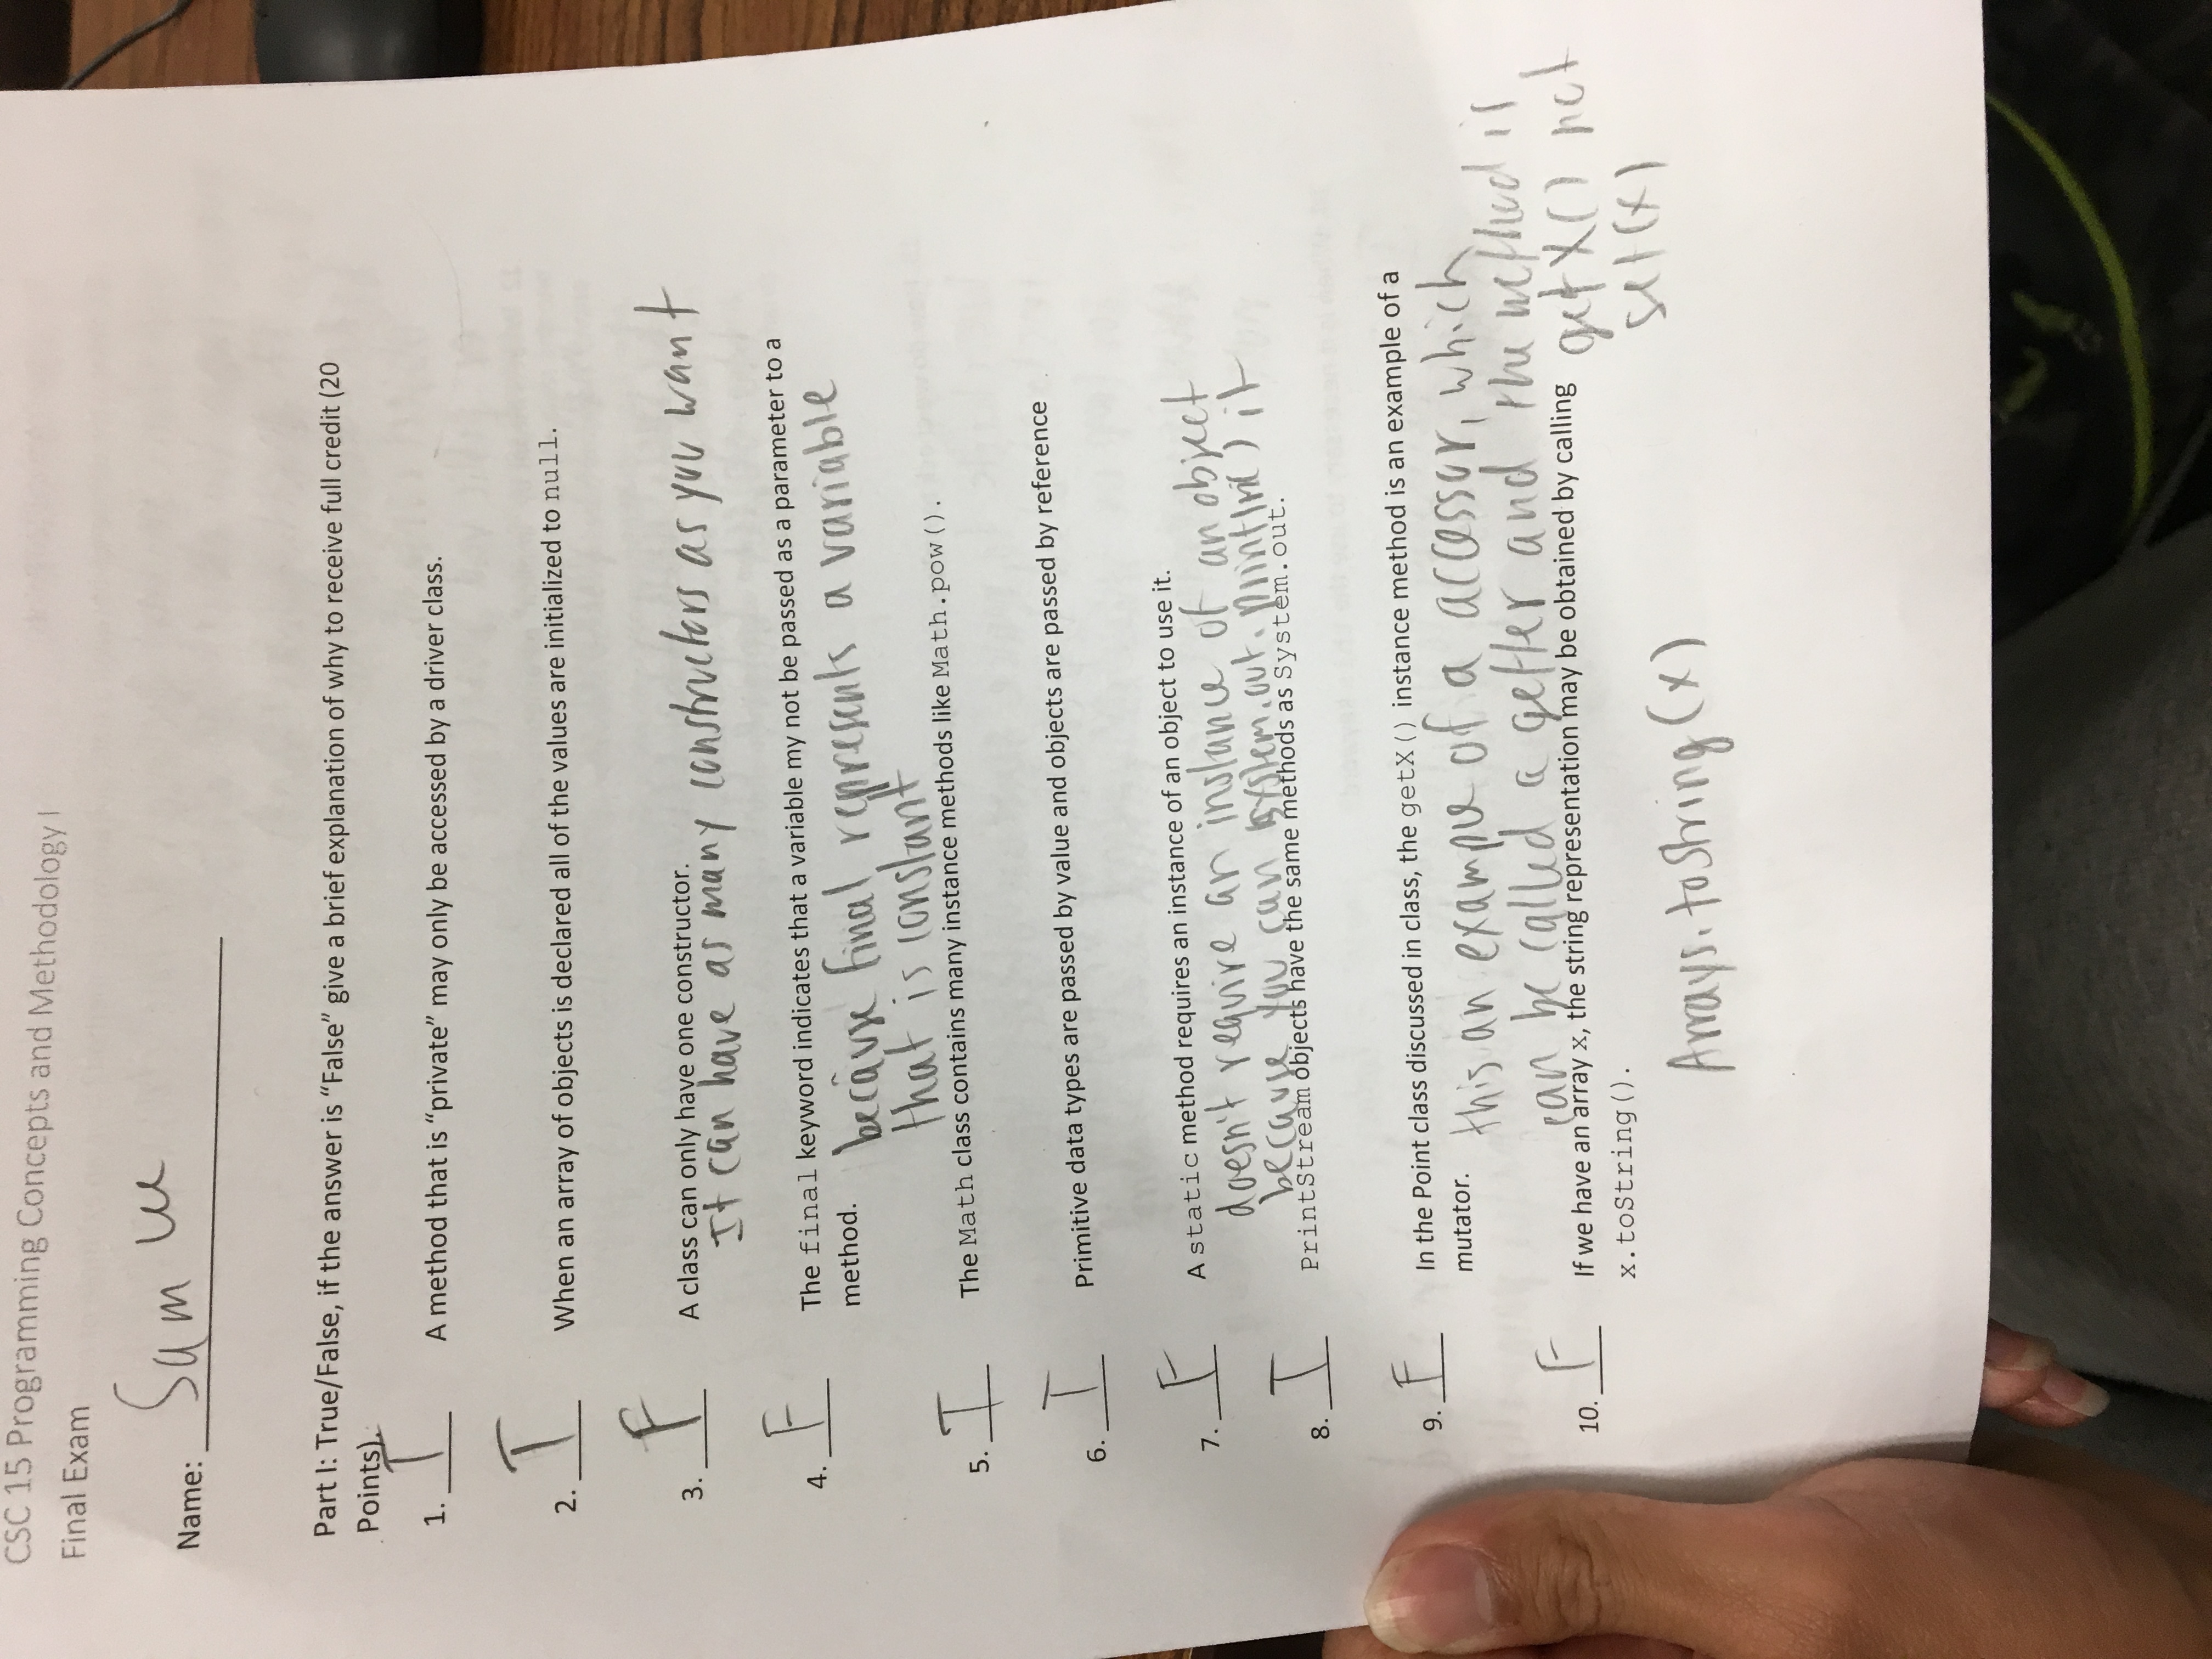 CSC 15 Programming Concepts and Methodology I
Final Exam
Name: Sam
Part I: True/False, if the answer is “False” give a brief explanation of why to receive full credit (20
Points).
1. T A method that is “private” may only be accessed by a driver class.
2. T When an array of objects is declared all of the values are initialized to null.
3. F A class can only have one constructor.
It can have as many constructors as you want
4. F The final keyword indicates that a variable my not be passed as a parameter to a
method. because final represents a variable
that is constant
5. T The Math class contains many instance methods like Math.pow().
6. T Primitive data types are passed by value and objects are passed by reference
7. F A static method requires an instance of an object to use it.
doesn't require an instance of an object
because you can system.out.println() it
8. T PrintStream objects have the same methods as System.out.
9. F In the Point class discussed in class, the getX() instance method is an example of a
mutator. this an example of a accessor, which
can be called a getter and the method is
getX() not
set(x)
10. F If we have an array x, the string representation may be obtained by calling
x.toString().
Arrays.toString(x)